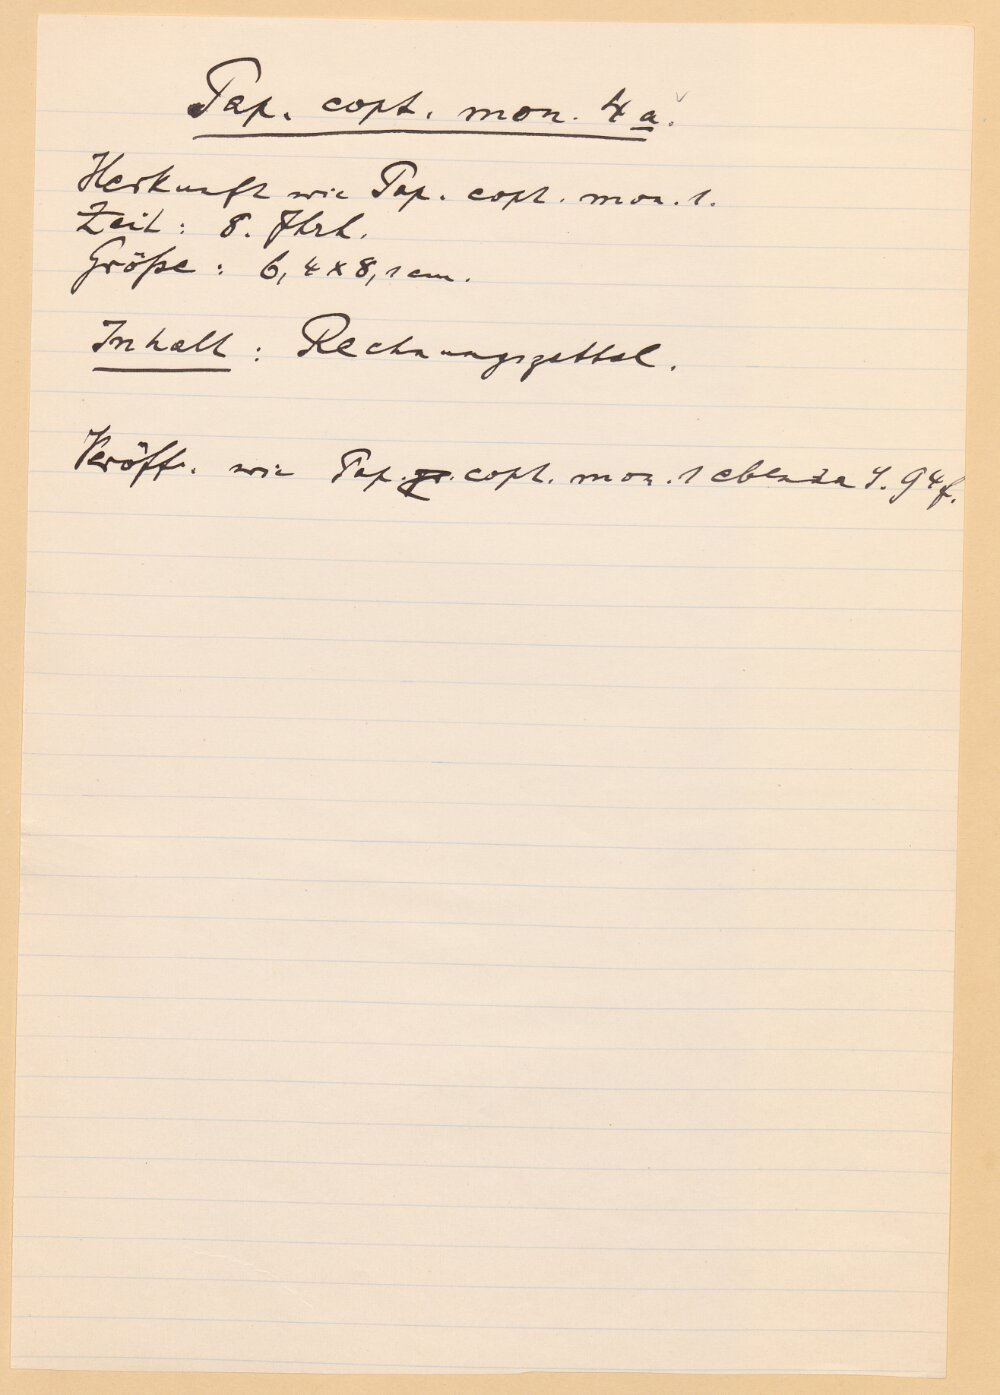 Pap. copt. mon. 4a.
Herkunft wie Pap. copt. mon. 1.
Zeit: 8. Jhrh.
Größe: 6,4 x 8,1 cm.
Inhalt: Rechnungszettel.
Veröff. wie Pap. gr. copt. mon. 1 ebenda S. 94f.